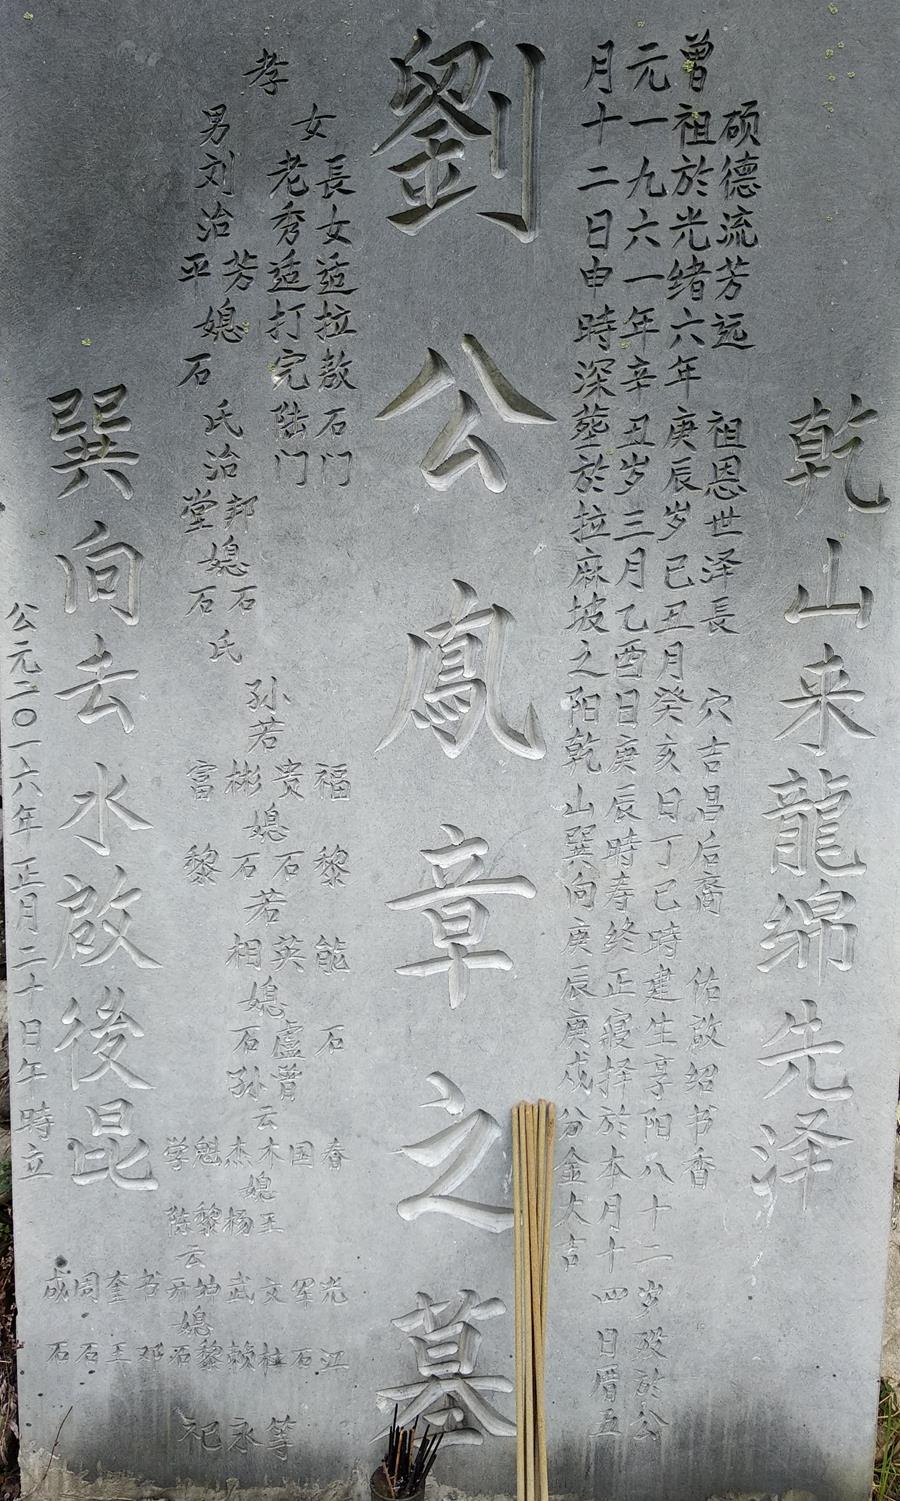 乾山来龍绵先泽
硕德流芳远 祖恩世泽長 穴吉昌后裔 佑啟绍书香
曾祖於光绪六年庚辰岁已丑月癸亥日丁巳時建生享阳八十二岁殁於公
元一九六一年辛丑岁三月乙酉日庚辰時寿终正寢择於本月十四日曆五
月十二日申時深塟於拉麻坡之阳乾山巽向庚辰庚戍分金大吉
劉公鳳章之墓
孝
女
長女适拉敖石门
老秀适打完陆门
男刘治
芳
平
媳
石
氏治
邦
堂
媳
石
石
氏
孙若
福 贵 彬 富
媳
黎 石 石 黎
若
能 英 相
媳
石 盧 石
曾孙
云
春 国 木 杰 魁 学
媳
王 杨 黎 陈
云
光 军 文 武 坤 开 书 奎 周 成
媳
江 石 杜 赖 黎 石 邓 王 石 石
等永祀
巽向去水啟後昆
公元二〇一六年正月二十日午時立